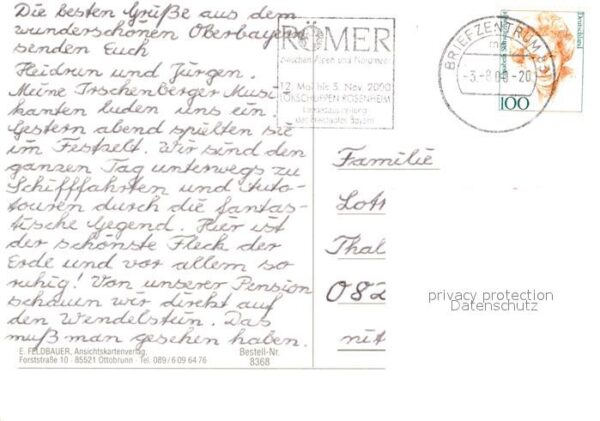 Die besten Grüße aus dem
wunderschönen Oberbayern
senden Euch
Heidrun und Jürgen.
Meine Irschenberger Musi-
kanten luden uns ein.
Gestern abend spielten sie
im Festzelt. Wir sind den
ganzen Tag unterwegs zu
Schifffahrten und Auto-
touren durch die fantas-
tische Gegend. Hier ist
der schönste Fleck der
Erde und vor allem so
ruhig! Von unserer Pension
schauen wir direkt auf
den Wendelstein. Das
muß man gesehen haben.
E. FELDBAUER, Ansichtskartenverlag,
Forststraße 10 · 85521 Ottobrunn · Tel. 089/6 09 64 76
Bestell-Nr.
8368
RÖMER
zwischen Alpen und Nordmeer
12. Mai bis 5. Nov. 2000
LOKSCHUPPEN ROSENHEIM
Landesausstellung
des Freistaates Bayern
BRIEFZENTRUM 83
-3.-8.00-20
Deutschland
100
Familie
Lott
Thal
082
mit
privacy protection
Datenschutz